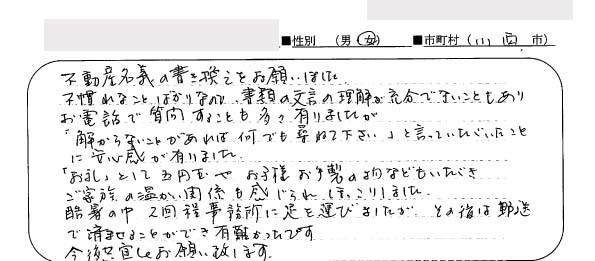 ■性別 （男・女） ■市町村（川西 市）
不動産名義の書き換えをお願いしました。
不慣れなことばかりなので、書類の文言の理解が充分でないこともあり
お電話で質問することも多々有りましたが
「解からないことがあれば何でも尋ねて下さい」と言っていただいたこと
に安心感が有りました。
「お礼」として五円玉や お子様お手製の物などもいただき
ご家族の温かい関係も感じられ ほっこりしました。
酷暑の中 2回程事務所に足を運びましたが、その後は郵送
で済ませることができ有難かったです
今後共宜しくお願い致します。